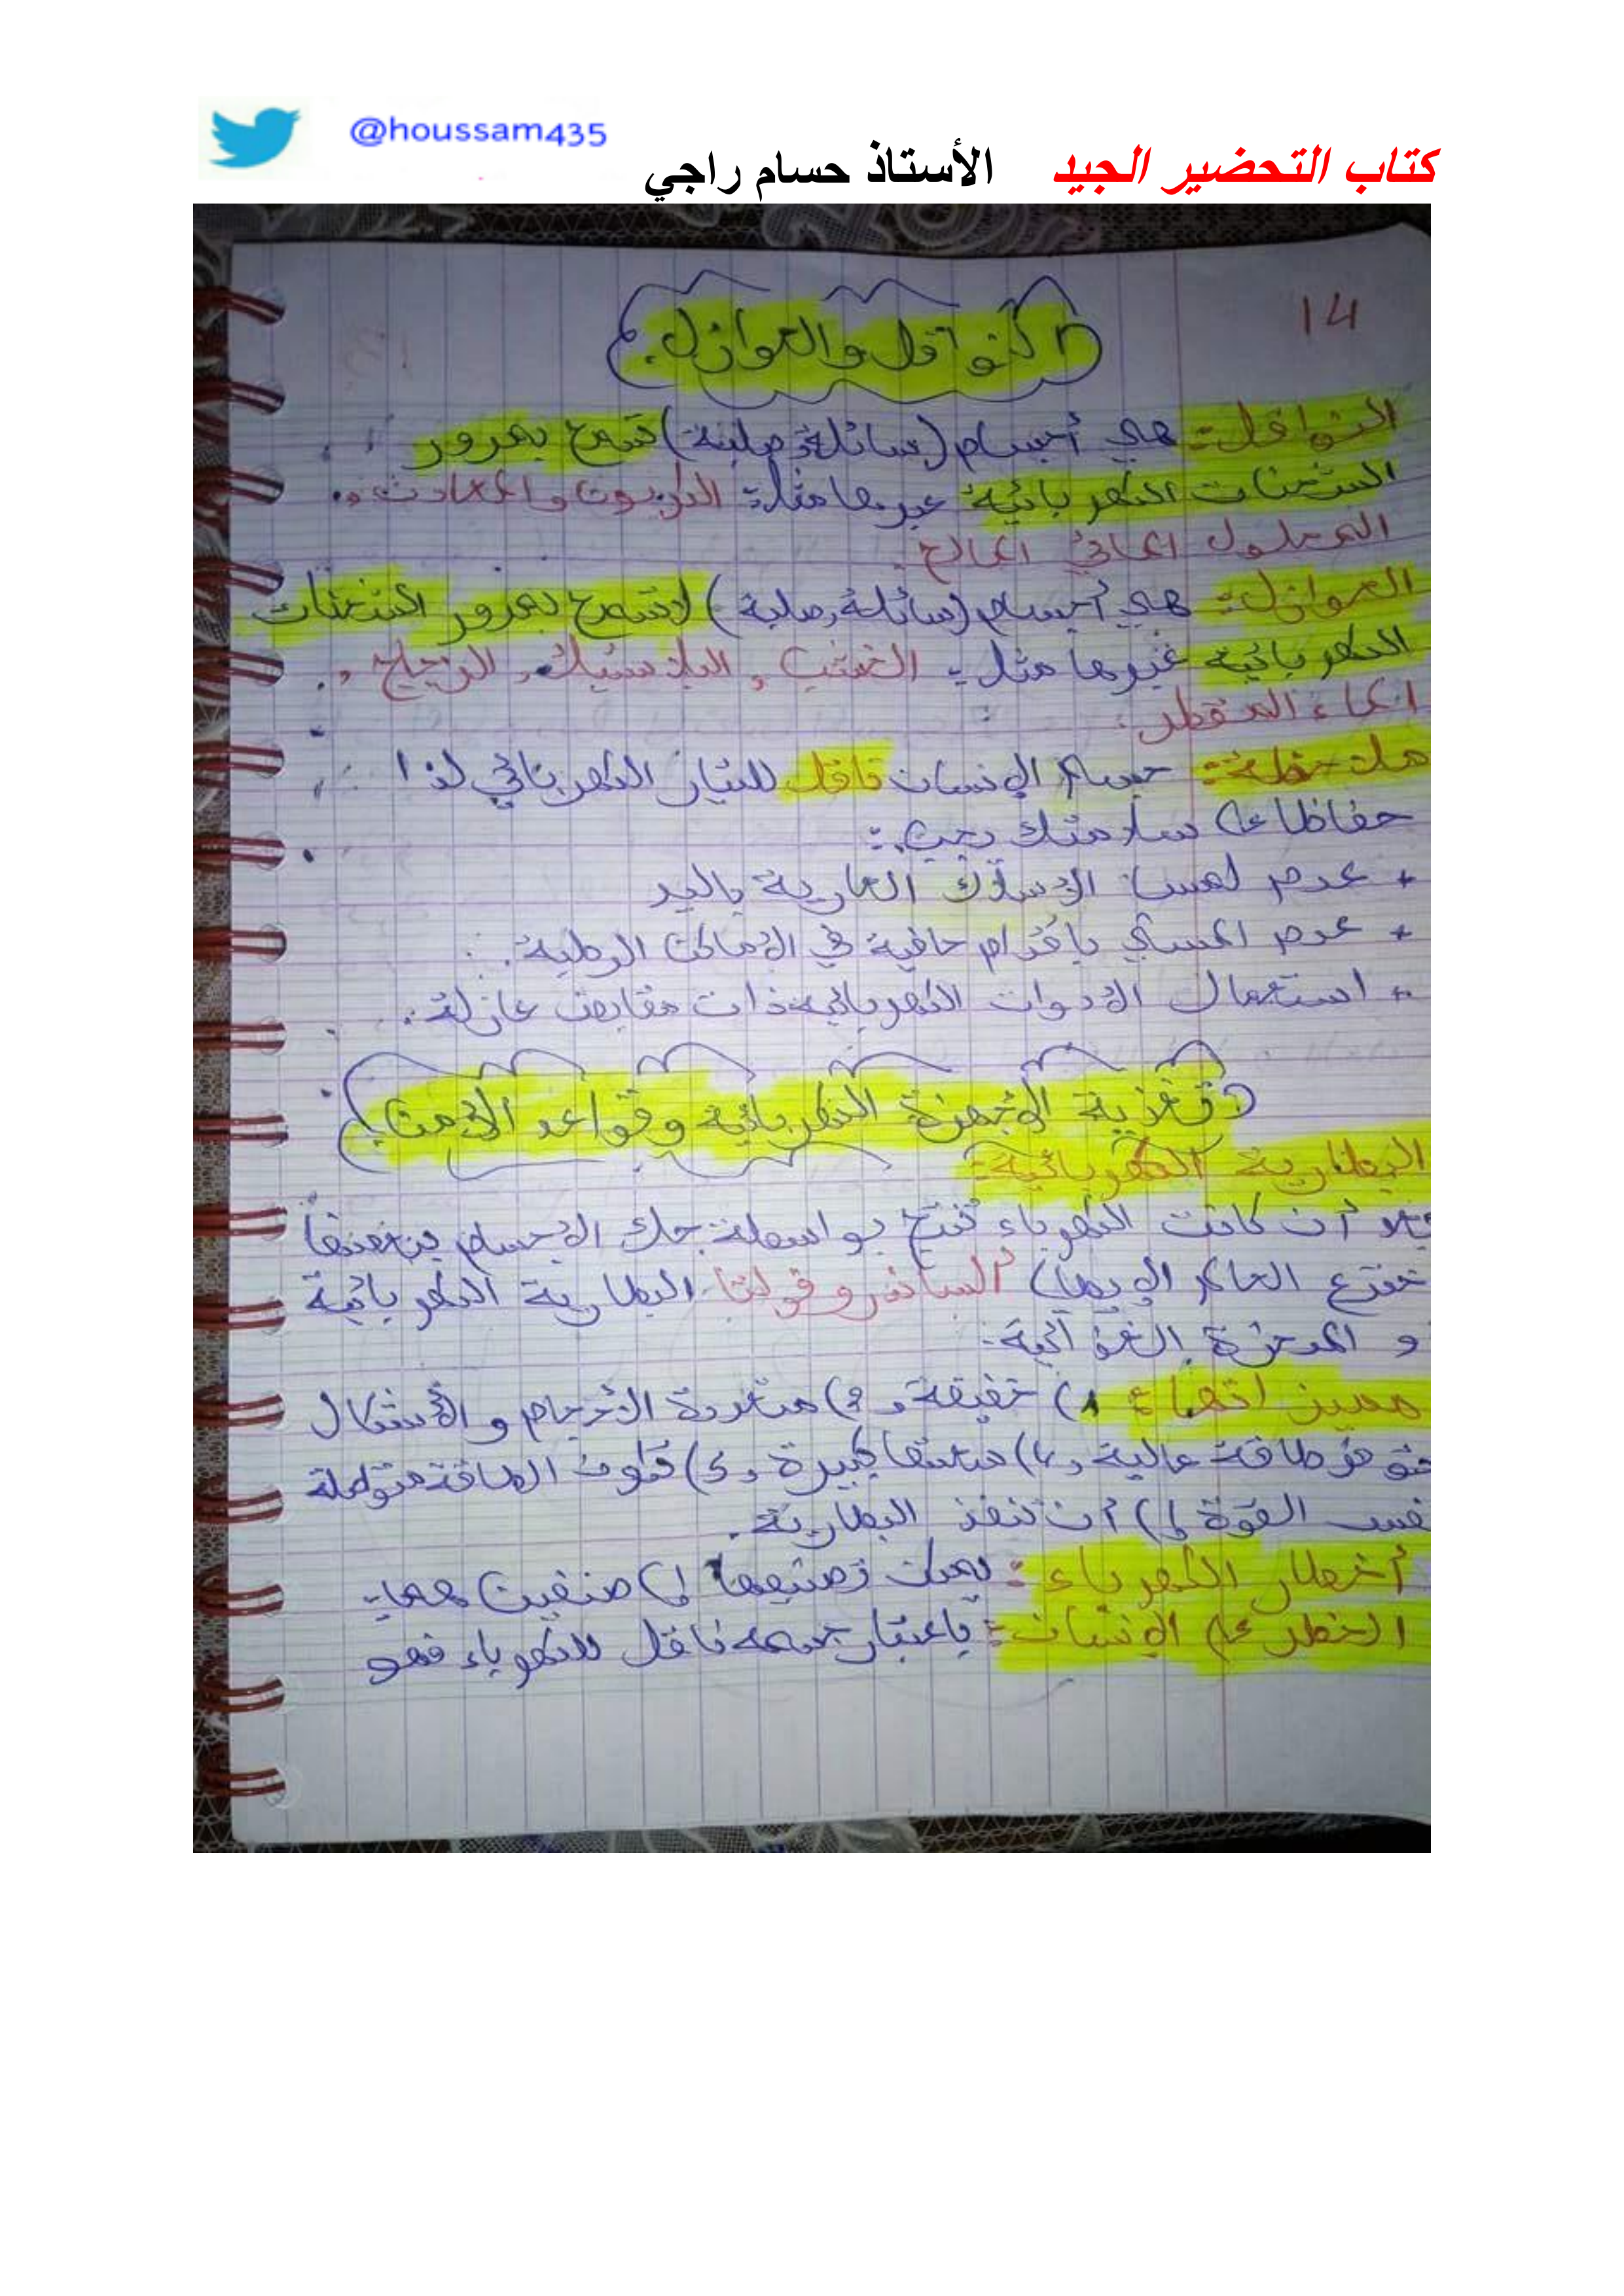 @houssam435
كتاب التحضير الجيد الأستاذ حسام راجي
14
النواقل والعوازل.
النواقل: هي أجسام (سائلة, صلبة) تسمح بمرور
الشحنات الكهربائية عبرها مثل: الكربون والمعادن و.
المحلول المائي المالح.
العوازل: هي أجسام (سائلة, صلبة) لا تسمح بمرور الشحنات
الكهربائية عبرها مثل: الخشب, البلاستيك, الزجاج,
الماء المقطر.
ملاحظة: جسم الإنسان ناقل للتيار الكهربائي لذا
حفاظا على سلامتك يجب:
+ عدم لمس الأسلاك العارية باليد
+ عدم المشي بأقدام حافية في الأماكن الرطبة.
+ استعمال الأدوات الكهربائية ذات مقابض عازلة.
تغذية الأجهزة الكهربائية وقواعد الأمن.
البطارية الكهربائية:
بعد أن كانت الكهرباء تنتج بواسطة حك الأجسام ببعضها
خترع العالم الإيطالي ألساندرو فولتا البطارية الكهربائية
و المدخرة
مميزاتها: 1) خفيفة, 2) متعددة الأحجام و الأشكال
توفر طاقة عالية, 4) منفعتها كبيرة, 5) تكون الطاقة متواصلة
نفس القوة إلى أن تنفذ البطارية.
أخطار الكهرباء: يمكن تصنيفها إلى صنفين هما:
الخطر على الإنسان: باعتبار جسمه ناقل للكهرباء فهو